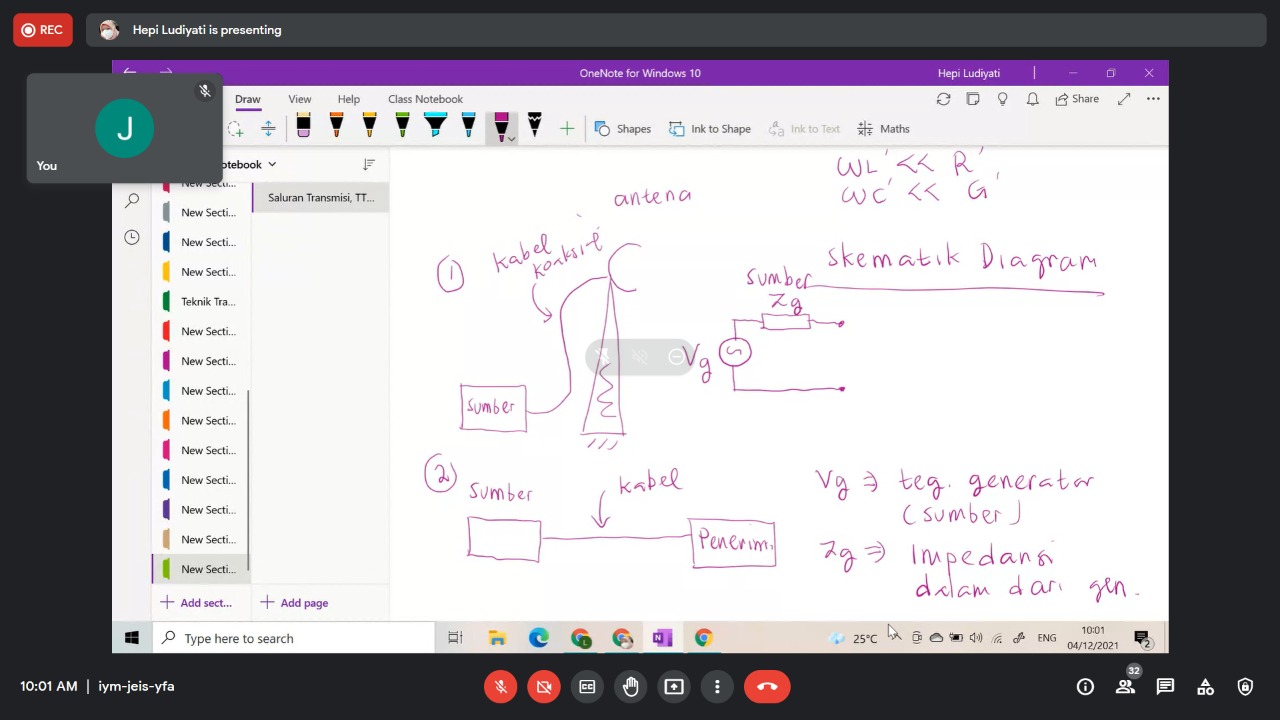 REC
Hepi Ludiyati is presenting
OneNote for Windows 10
Hepi Ludiyati
J
You
Draw
View
Help
Class Notebook
Share
Shapes
Ink to Shape
Ink to Text
Maths
otebook
Saluran Transmisi, TT...
New Secti...
New Secti...
New Secti...
New Secti...
Teknik Tra...
New Secti...
New Secti...
New Secti...
New Secti...
New Secti...
New Secti...
New Secti...
New Secti...
New Secti...
Add sect...
Add page
WL' << R'
WC' << G'
antena
1
kabel
koaksil
Sumber
Skematik Diagram
Sumber
Zg
Vg
2
Sumber
kabel
Penerim.
Vg ⇒ teg. generator
(sumber)
Zg ⇒ Impedansi
dalam dari gen.
Type here to search
25°C
ENG
10:01
04/12/2021
2
10:01 AM | iym-jeis-yfa
32